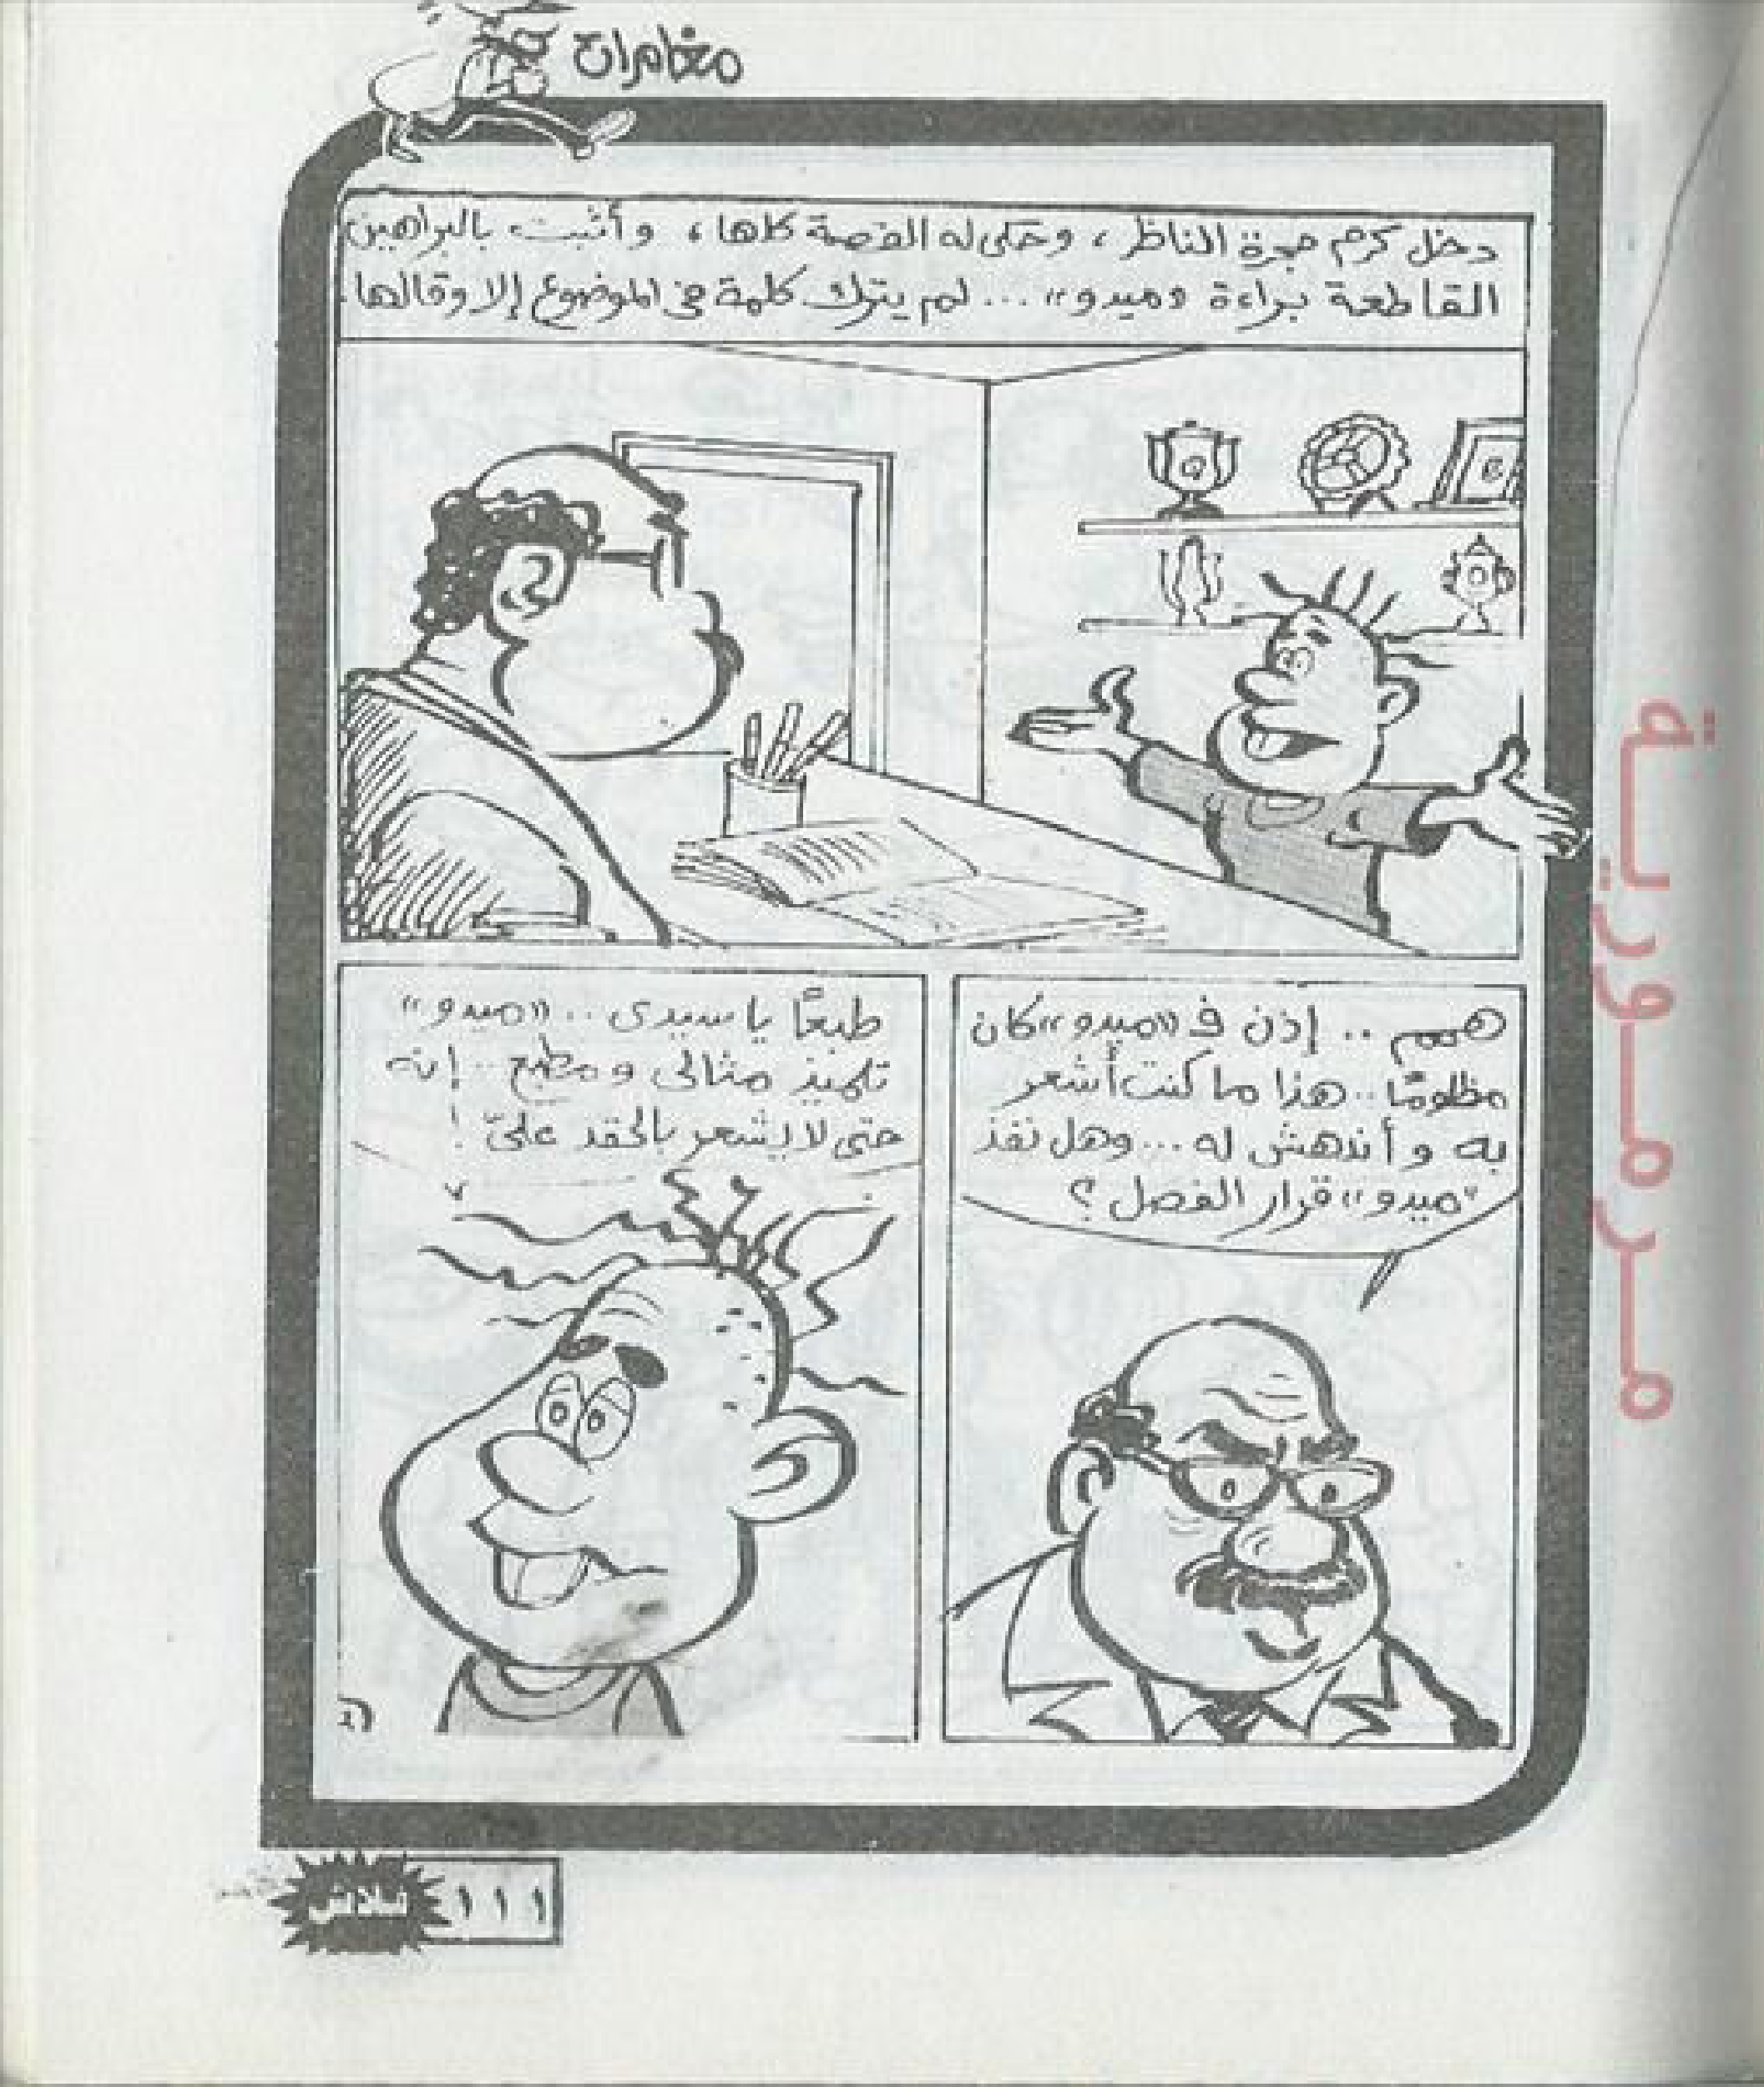 مغامرات
دخل كرم حجرة الناظر، وحكى له القصة كلها، وأثبت بالبراهين
القاطعة براءة «ميدو»... لم يترك كلمة فى الموضوع إلا وقالها
همم .. إذن فـ «ميدو» كان
مظلومًا.. هذا ما كنت أشعر
به وأندهش له... وهل نفذ
"ميدو" قرار الفصل؟
طبعًا يا سيدى .. «ميدو»
تلميذ مثالى ومطيع.. إنه
حتى لا يشعر بالحقد علىّ!
فلاش
١١١
مرمورية